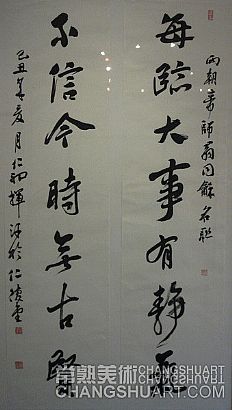 两朝帝師翁同龢名联
每臨大事有靜氣
不信今時無古賢
己丑年夏月仁初揮汗於仁
常熟美術 CHANGSHUART
CHANGSHUART.COM